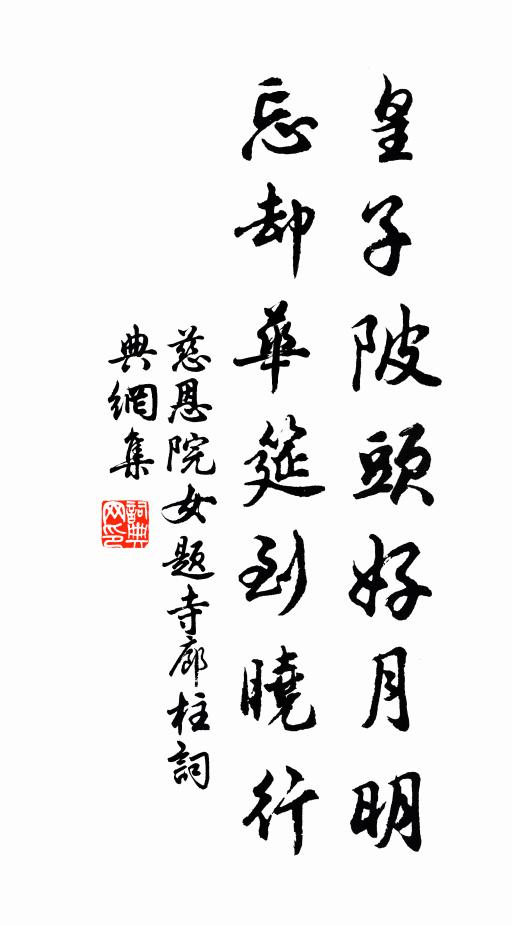 皇子陂頭好月明
忘却華筵到曉行
慈恩院女題寺廊柱詞
典網集
詞典網印